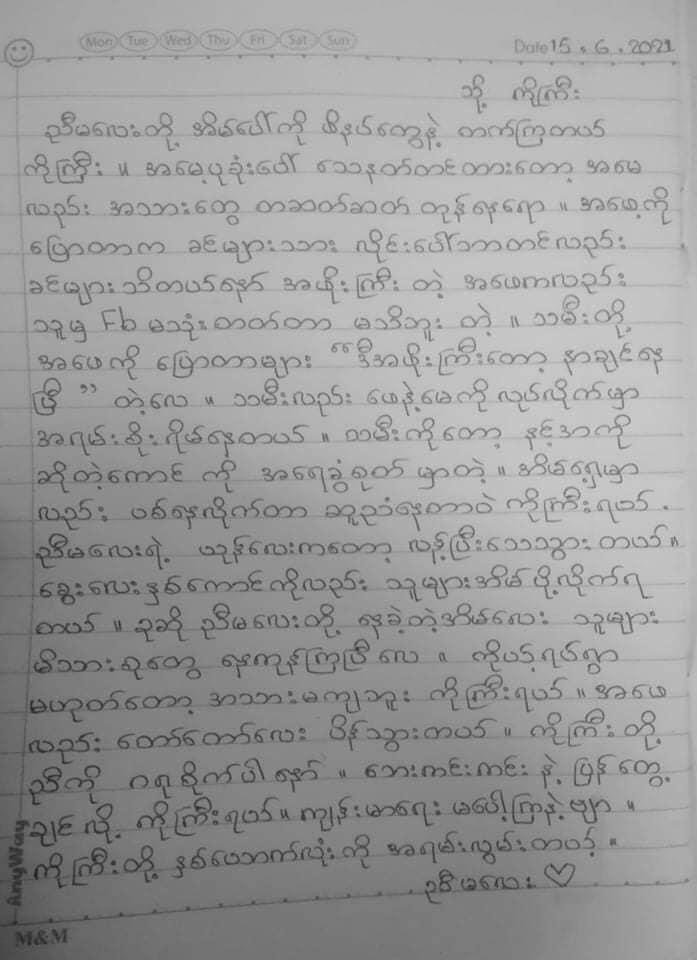 Mon Tue Wed Thu Fri Sat Sun
Date 15.6.2021
သို့ ကိုကြီး
ညီမလေးတို့ အိမ်ပေါ်ကို ဖိနပ်တွေနဲ့ တက်ကြတယ်
ကိုကြီး ။ အမေ့ပုခုံးပေါ် သေနတ်တင်ထားတော့ အမေ
လည်း အသားတွေ တဆတ်ဆတ် တုန်နေရော ။ အဖေ့ကို
ပြောတာက ခင်ဗျားသား လိုင်းပေါ်ဘာတင်လည်း
ခင်ဗျား သိတယ်နော် အဖိုးကြီး တဲ့ အဖေကလည်း
သူမှ Fb မသုံးတတ်တာ မသိဘူး တဲ့ ။ သမီးတို့
အဖေကို ပြောတာများ “ဒီအဖိုးကြီးတော့ နာချင်နေ
ပြီ ” တဲ့လေ ။ သမီးလည်း ဖေနဲ့မေကို လုပ်လိုက်မှာ
အရမ်းစိုးရိမ်နေတယ် ။ သမီးကိုတော့ နင့်အကို
ဆိုတဲ့ကောင် ကို အရေခွံစုတ် မှာတဲ့ ။ အိမ်ရှေ့မှာ
လည်း ပစ်နေလိုက်တာ ဆူညံနေတာပဲ ကိုကြီးရယ် .
ညီမလေးရဲ့ ယုန်လေးကတော့ လန့်ပြီးသေသွားတယ်။
ခွေးလေးနှစ်ကောင်ကိုလည်း သူများအိမ် ပို့လိုက်ရ
တယ် ။ ခုဆို ညီမလေးတို့ နေခဲ့တဲ့အိမ်လေး သူများ
မိသားစုတွေ နေကုန်ကြပြီ လေ ။ ကိုယ့်ရပ်ရွာ
မဟုတ်တော့ အသားမကျဘူး ကိုကြီးရယ် ။ အဖေ
လည်း တော်တော်လေး ပိန်သွားတယ် ။ ကိုကြီး တို့
ညီကို ဂရုစိုက်ပါနော် ။ ဘေးကင်းကင်း နဲ့ ပြန်တွေ့
ချင်လို့ ကိုကြီးရယ်။ ကျန်းမာရေး မပေါ့ကြနဲ့ဗျာ ။
ကိုကြီးတို့ နှစ်ယောက်လုံးကို အရမ်းလွမ်းတယ် ။
ညီမလေး ♡
AnyWay
M&M